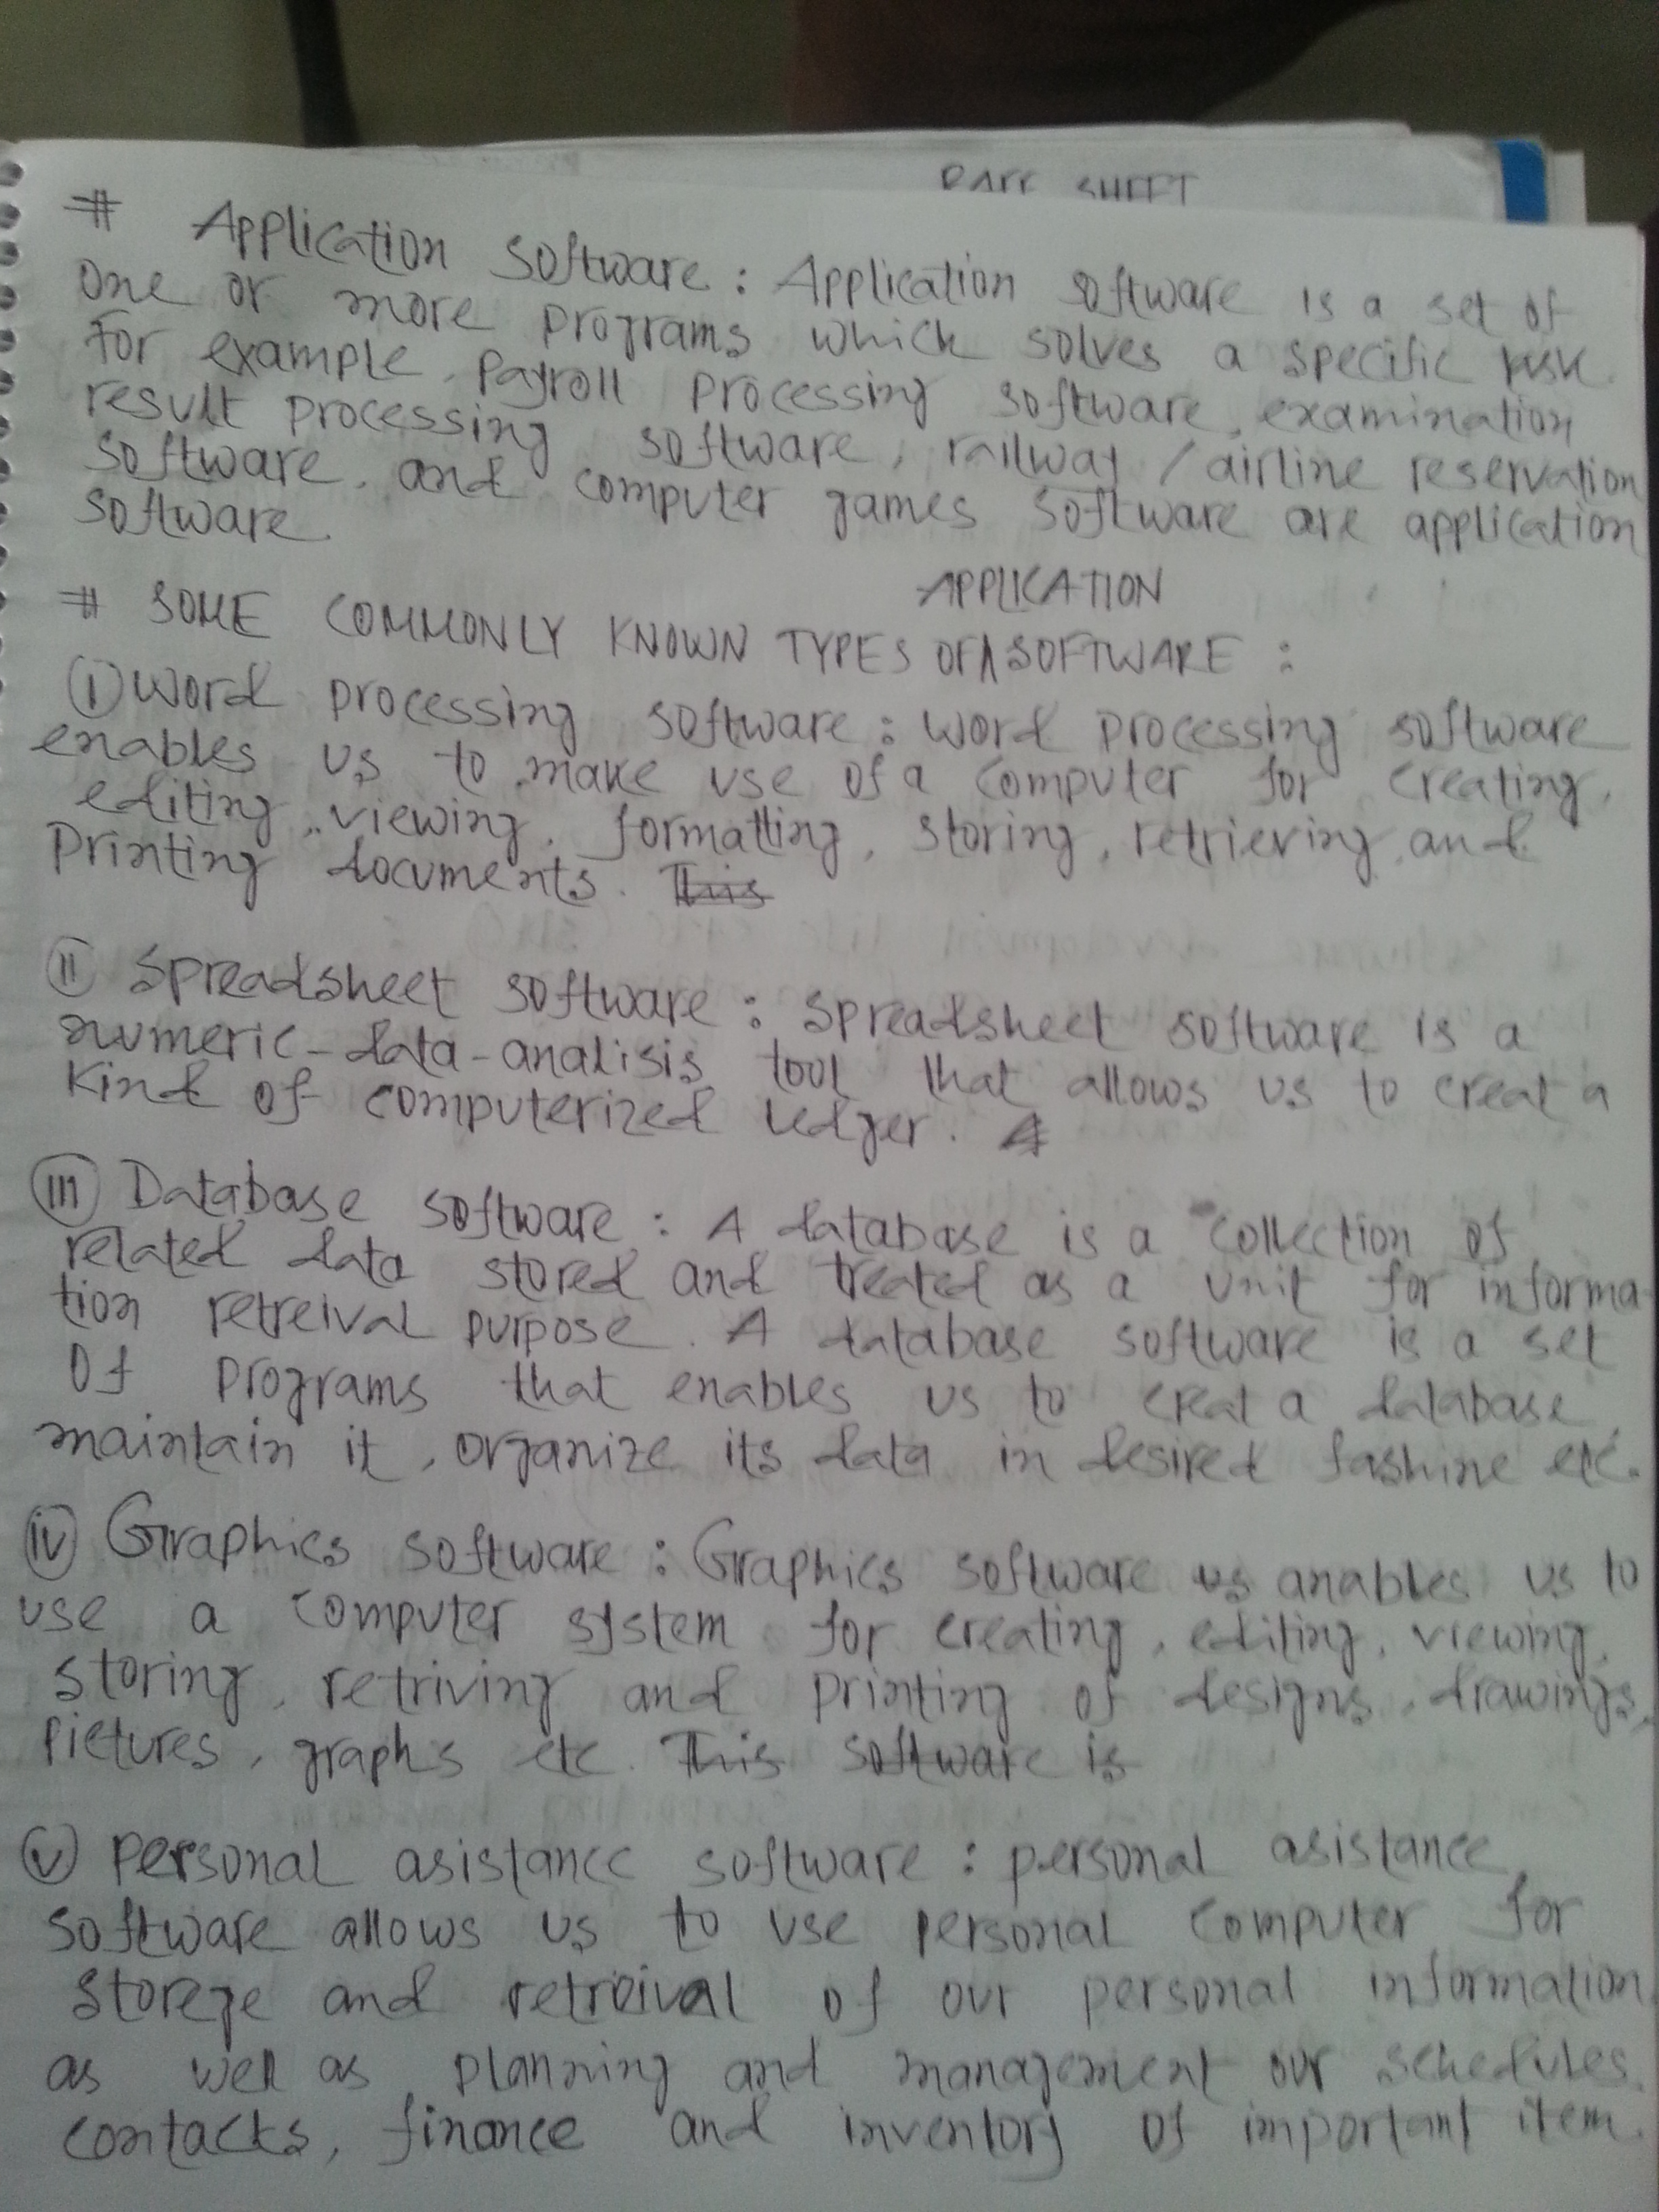 RATE SHEET
# Application Software : Application software is a set of
one or more programs which solves a specific task.
For example, payroll processing software, examination
result processing software, railway / airline reservation
software, and computer games software are application
software.
# SOME COMMONLY KNOWN TYPES OF APPLICATION SOFTWARE :
(i) Word processing software : Word processing software
enables us to make use of a computer for creating,
editing, viewing, formatting, storing, retrieving, and
Printing documents. This
(ii) Spreadsheet software : Spreadsheet software is a
numeric-data-analisis tool that allows us to creat a
kind of computerized ledger. A
(iii) Database software : A database is a collection of
related data stored and treated as a unit for informa-
tion retreival purpose. A database software is a set
Of programs that enables us to creat a database,
maintain it, organize its data in desired fashine etc.
(iv) Graphics software : Graphics software us anables us to
use a computer system for creating, editing, viewing,
storing, retriving and printing of designs, drawings,
pictures, graphs etc. This software is
(v) Personal asistance software : personal asistance
software allows us to use personal computer for
storege and retreival of our personal information
as well as planning and management our schedules,
contacks, finance and inventory of important item.